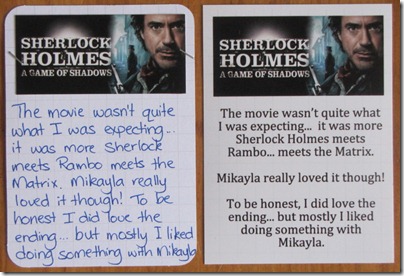 SHERLOCK
HOLMES
A GAME OF SHADOWS
The movie wasn't quite
what I was expecting...
it was more Sherlock
meets Rambo meets the
Matrix. Mikayla really
loved it though! To be
honest I did love the
ending... but mostly I liked
doing something with Mikayla
SHERLOCK
HOLMES
A GAME OF SHADOWS
The movie wasn't quite what
I was expecting... it was more
Sherlock Holmes meets
Rambo... meets the Matrix.
Mikayla really loved it though!
To be honest, I did love the
ending... but mostly I liked
doing something with
Mikayla.